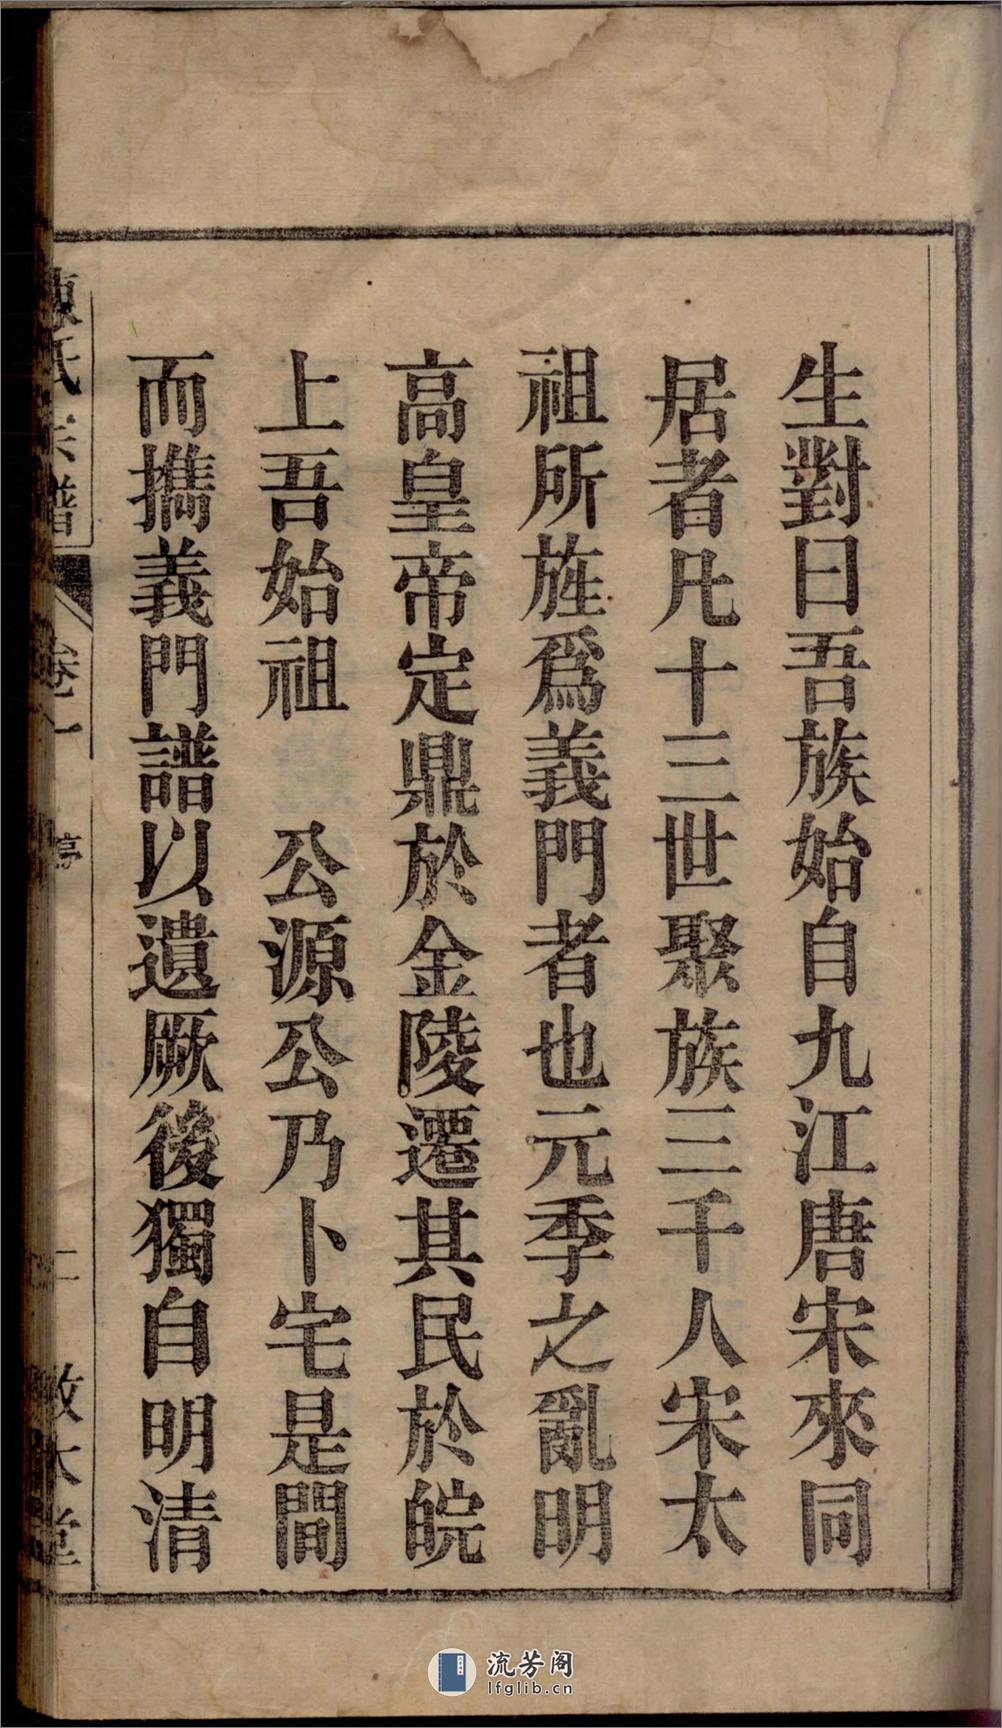 生對曰吾族始自九江唐宋來同
居者凡十三世聚族三千人宋太
祖所旌爲義門者也元季之亂明
高皇帝定鼎於金陵遷其民於皖
上吾始祖　公源公乃卜宅是間
而攜義門譜以遺厥後獨自明清
陳氏宗譜 卷一 序 二 敦本堂
流芳阁
lfglib.cn